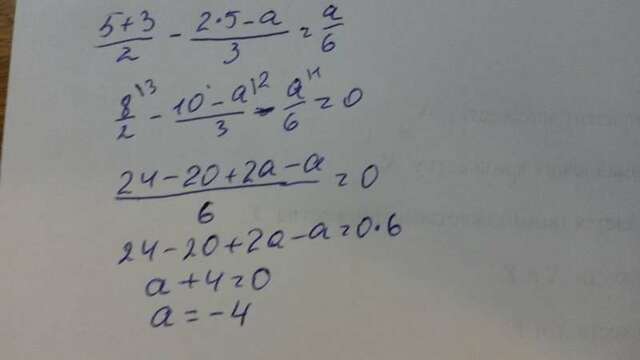 5+3/2 - 2·5-a/3 = a/6
8/2 \3 - 10-a/3 \2 - a/6 \1 = 0
24-20+2a-a/6 = 0
24-20+2a-a=0·6
a+4=0
a=-4